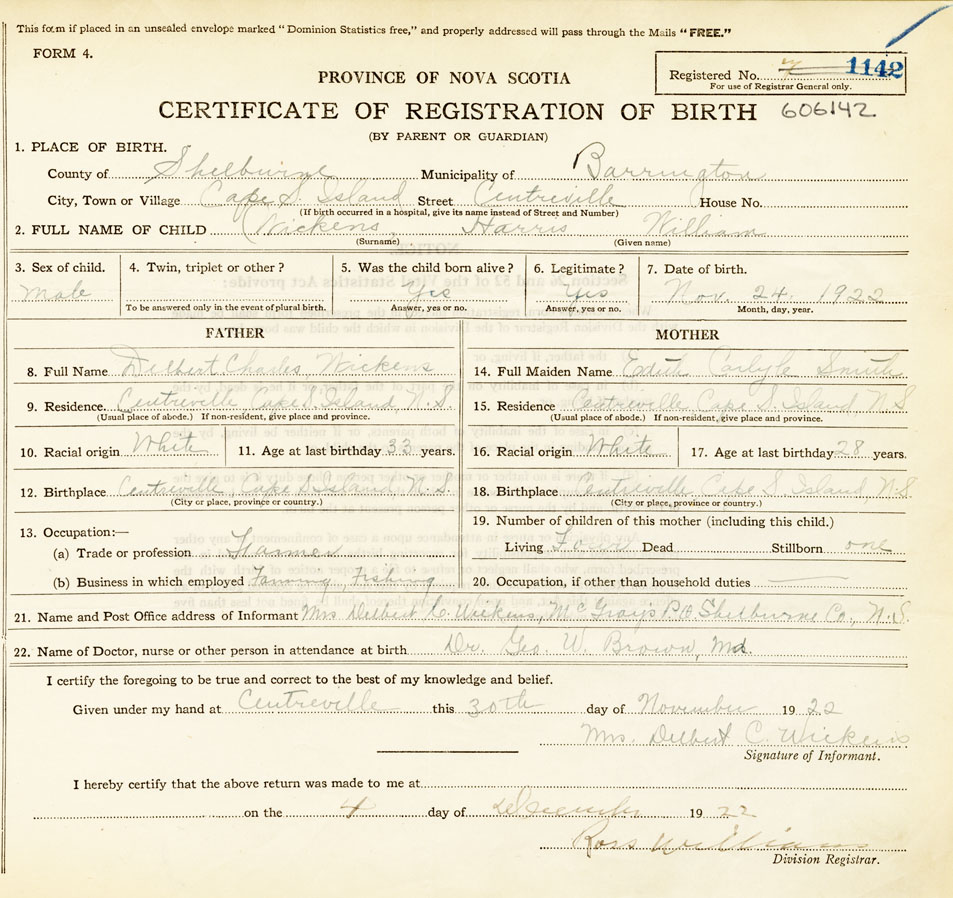 This form if placed in an unsealed envelope marked "Dominion Statistics free," and properly addressed will pass through the Mails "FREE."
FORM 4.
Registered No. 1142
For use of Registrar General only.
PROVINCE OF NOVA SCOTIA
CERTIFICATE OF REGISTRATION OF BIRTH 606142
(BY PARENT OR GUARDIAN)
1. PLACE OF BIRTH.
County of Shelburne Municipality of Barrington
City, Town or Village Cape S. Island Street Centreville House No.
(If birth occurred in a hospital, give its name instead of Street and Number)
2. FULL NAME OF CHILD Wickens, Harris William
(Surname) (Given name)
3. Sex of child. 4. Twin, triplet or other? 5. Was the child born alive? 6. Legitimate? 7. Date of birth.
Male Yes Yes Nov. 24. 1922
To be answered only in the event of plural birth. Answer, yes or no. Answer, yes or no. Month, day, year.
FATHER MOTHER
8. Full Name Delbert Charles Wickens 14. Full Maiden Name Edith Carlyle Smith
9. Residence Centreville Cape S. Island, N.S. 15. Residence Centreville Cape S Island N S
(Usual place of abode.) If non-resident, give place and province. (Usual place of abode.) If non-resident, give place and province.
10. Racial origin White 11. Age at last birthday 33 years. 16. Racial origin White 17. Age at last birthday 28 years.
12. Birthplace Centreville, Cape S. Island, N.S. 18. Birthplace Centreville Cape S Island N.S
(City or place, province or country.) (City or place, province or country.)
13. Occupation:— 19. Number of children of this mother (including this child.)
(a) Trade or profession Living Four Dead Stillborn one
(b) Business in which employed Fishing 20. Occupation, if other than household duties
21. Name and Post Office address of Informant Mrs Delbert C. Wickens, McGray's P.O. Shelburne Co., N.S.
22. Name of Doctor, nurse or other person in attendance at birth Dr. Geo. W. Brown, Md.
I certify the foregoing to be true and correct to the best of my knowledge and belief.
Given under my hand at Centreville this 30th day of November 1922
Mrs. Delbert C. Wickens
Signature of Informant.
I hereby certify that the above return was made to me at
on the 4 day of December 1922
Ross Williams
Division Registrar.